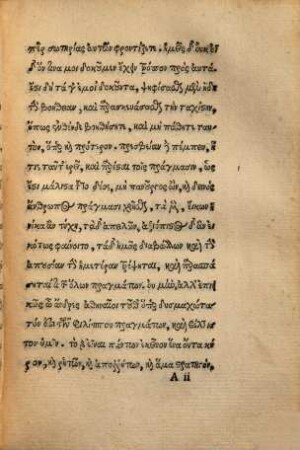 πὲρ σωτηρίας αὑτῶν φροντίζετε.
ἔςι δὲ τά γ' ἐμοὶ δοκοῦντα, ψηφίσαθς μὲν ἤδη
τὴν βοήθειαν, καὶ παρασκευάσαθς τὴν ταχίςην,
ὅπως ἐνθένδε βοηθήσητε, καὶ μὴ πάθητε ταυ
τὸν, ὅπερ καὶ πρότερον. πρεσβείαν δὲ πέμπειν, ἥ
τις ταῦτ' ἐρεῖ, καὶ παρέςαι τοῖς πράγμασιν, ὡς
ἔςι μάλιςα τοῦτο δέος, μὴ πανοῦργος ὢν, καὶ δεινὸς
ἄνθρωπος πράγμασι χρῆθς, τὰ μὲν, εἴκων ἡ
νίκα ἂν τύχῃ, τὰ δ' ἀπειλῶν, ἀξιόπιςος δ' ἂν εἰ
κότως φαίνοιτο, τὰ δ' ἡμᾶς διαβάλλων καὶ τὴν
ἀπουσίαν τὴν ἡμετέραν τρέψηται, καὶ παρασπά
σηταί τι τῶν ὅλων πραγμάτων. οὐ μὴν, ἀλλ' ἐπι
κῶς ὦ ἄνδρες ἀθηναῖοι τοῦθ' ὃ δυσμαχώτα
τόν ἐςι τῶν Φιλίππου πραγμάτων, καὶ βέλτι
ςον ὑμῖν. τὸ γὰρ εἶναι πάντων ἐκεῖνον ἕνα ὄντα κύ
ριον, καὶ ῥητῶν, καὶ ἀπορρήτων, καὶ ἅμα στρατηγὸν,
A ii